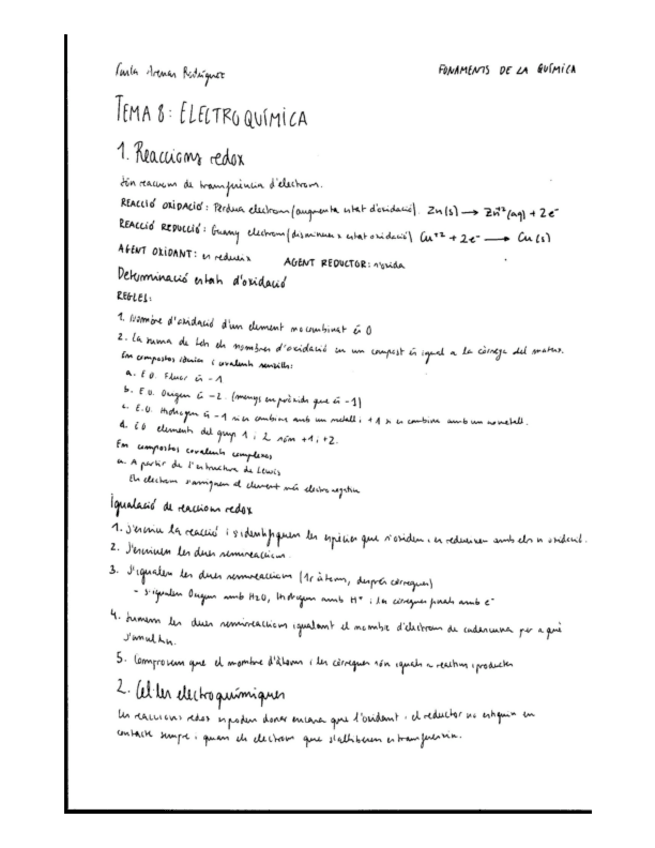 Carla Arenas Rodríguez
FONAMENTS DE LA QUÍMICA
TEMA 8: ELECTROQUÍMICA
1. Reaccions redox
Són reaccions de transferència d'electrons.
REACCIÓ OXIDACIÓ: Pèrdua electrons (augmenta estat d'oxidació). Zn(s) → Zn⁺²(aq) + 2e⁻
REACCIÓ REDUCCIÓ: Guany electrons (disminueix estat oxidació) Cu⁺² + 2e⁻ → Cu(s)
AGENT OXIDANT: es redueix AGENT REDUCTOR: s'oxida
Determinació estats d'oxidació
REGLES:
1. Nombre d'oxidació d'un element no combinat és 0
2. La suma de tots els nombres d'oxidació en un compost és igual a la càrrega del mateix.
En compostos iònics i covalents senzills:
a. E.O. Fluor és -1
b. E.O. Oxigen és -2. (menys en peròxids que és -1)
c. E.O. Hidrogen és -1 si es combina amb un metall i +1 si es combina amb un no metall.
d. E.O. elements del grup 1 i 2 són +1 i +2.
En compostos covalents complexos
a. A partir de l'estructura de Lewis
Els electrons s'assignen al element més electronegatiu
Igualació de reaccions redox
1. S'escriu la reacció i s'identifiquen les espècies que s'oxiden i es redueixen amb els n oxidació.
2. S'escriuen les dues semireaccions.
3. S'igualen les dues semireaccions (1r àtoms, després càrregues)
- s'igualen Oxigen amb H2O, Hidrogen amb H⁺ i les càrregues finals amb e⁻
4. Sumem les dues semireaccions igualant el nombre d'electrons de cadascuna per a què
s'anul·lin.
5. Comprovem que el nombre d'àtoms i les càrregues són iguals a reactius i productes
2. Cel·les electroquímiques
Les reaccions redox es poden donar encara que l'oxidant i el reductor no estiguin en
contacte sempre i quan els electrons que s'alliberen es transfereixin.